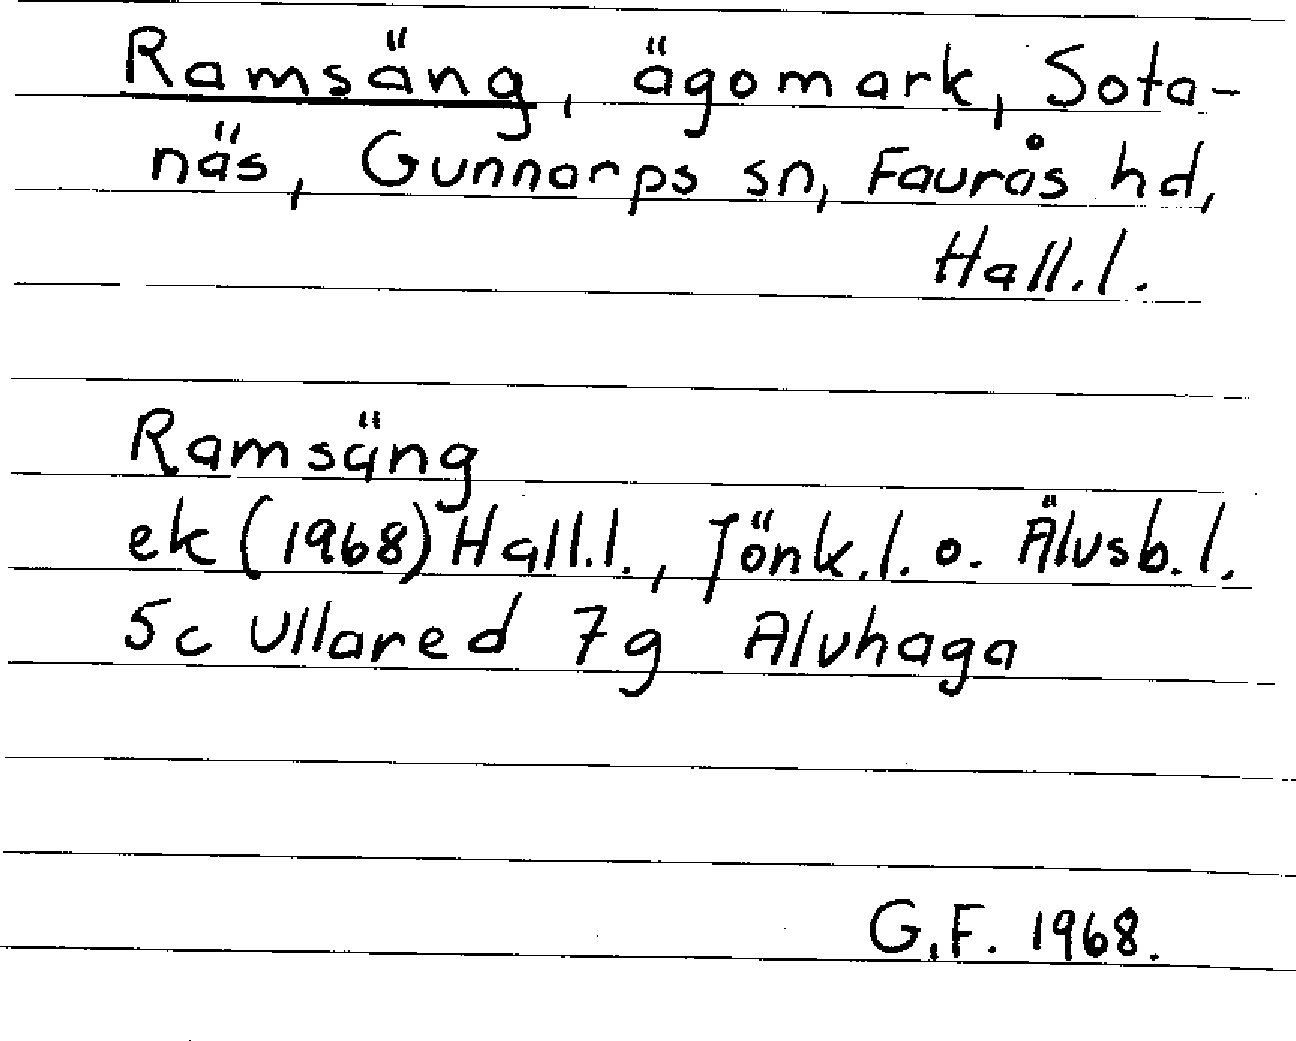 Ramsäng, ägomark, Sota-
näs, Gunnarps sn, Faurås hd,
Hall.l.
Ramsäng
ek (1968) Hall.l., Jönk.l. o. Älvsb.l.
5c Ullared 7g Alvhaga
G.F. 1968.